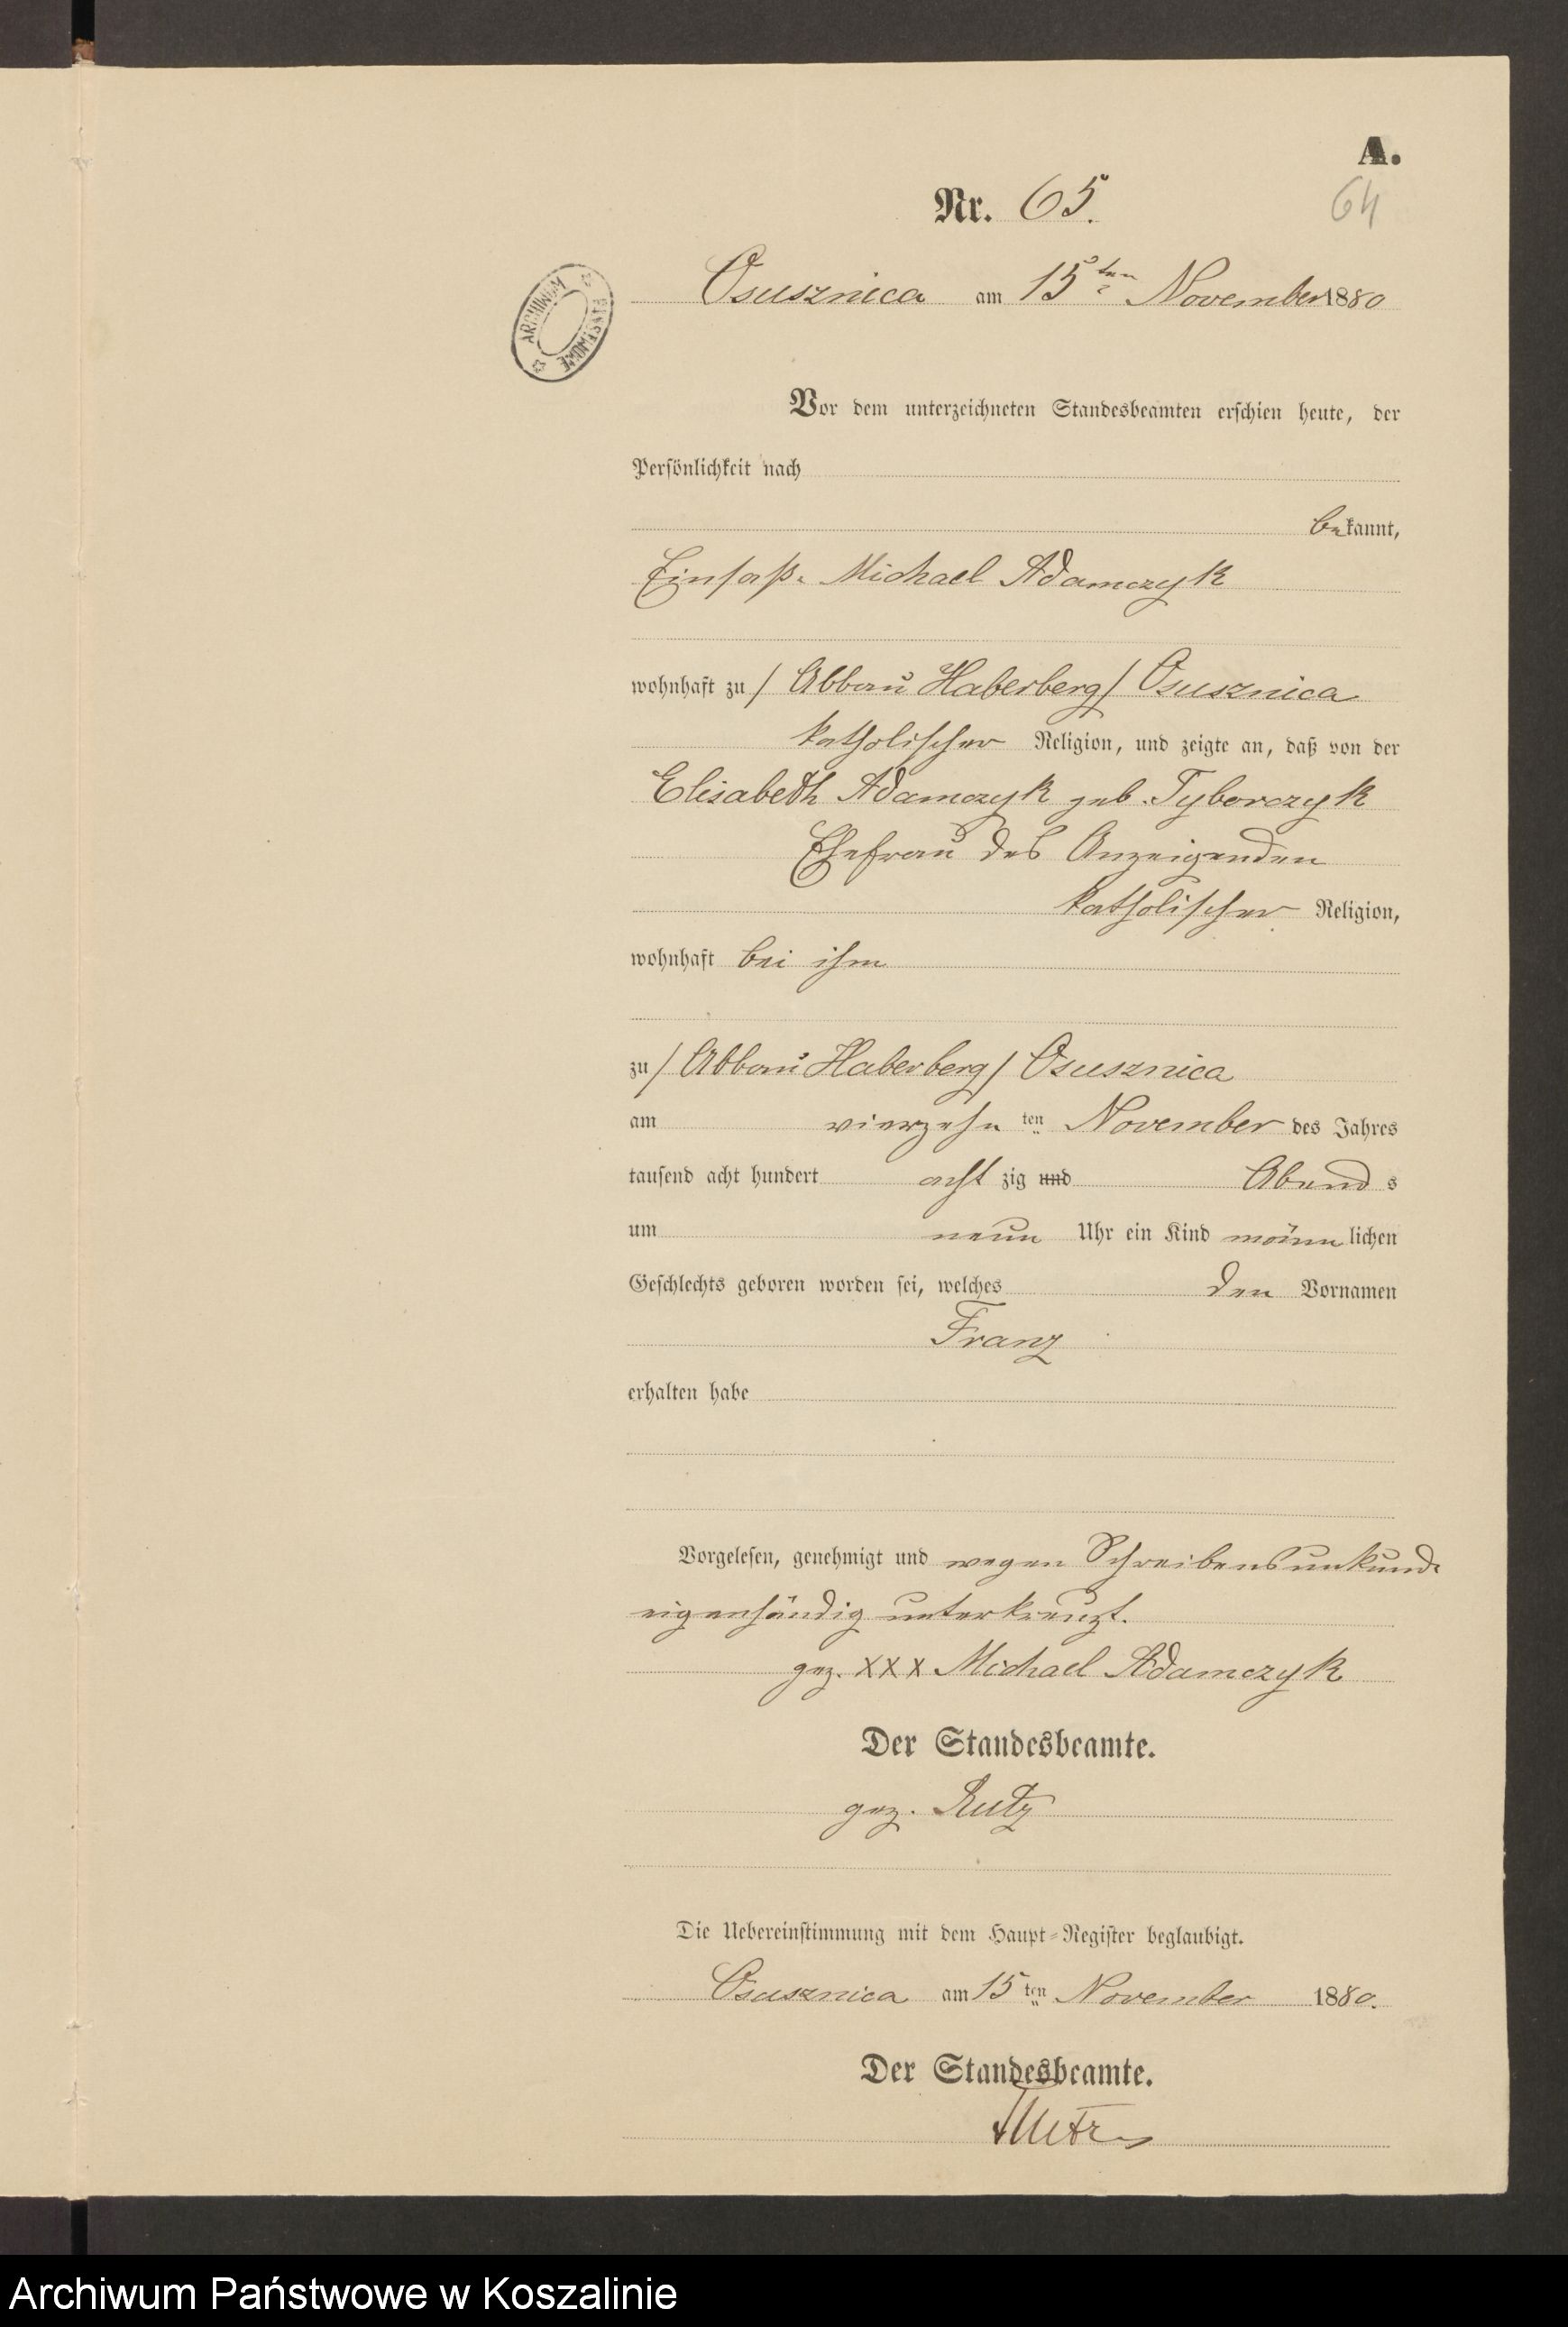 A.
Nr. 65.
64
Osusznica am 15ten November 1880
ARCHIWUM PAŃSTWOWE
Vor dem unterzeichneten Standesbeamten erschien heute, der
Persönlichkeit nach
bekannt,
Einsaße Michael Adamczyk
wohnhaft zu / Abbau Haberberg / Osusznica
katholischer Religion, und zeigte an, daß von der
Elisabeth Adamczyk geb. Tyborczyk
Ehefrau des Anzeigenden
katholischer Religion,
wohnhaft bei ihm
zu / Abbau Haberberg / Osusznica
am vierzehn ten November des Jahres
tausend acht hundert acht zig und Abend s
um neun Uhr ein Kind männlichen
Geschlechts geboren worden sei, welches den Vornamen
Franz
erhalten habe
Vorgelesen, genehmigt und wegen Schreibensunkunde
eigenhändig unterkreuzt.
gez. XXX Michael Adamczyk
Der Standesbeamte.
gez. Rutz
Die Uebereinstimmung mit dem Haupt-Register beglaubigt.
Osusznica am 15 ten November 1880.
Der Standesbeamte.
Archiwum Państwowe w Koszalinie